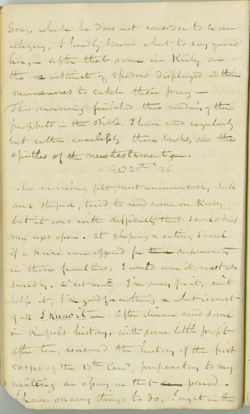 Song, which he does not consider to be an
allegory. I hardly know what to say about
him, - after that some in Kirby on
the instinct of spiders displayed in their
manoeuvres to catch their prey -
This morning finished the reading of the
prophets in the Bible, I have read regularly
but rather carelessly these books, and the
epistles of the new testament
Feb 25th '36
This morning felt most uncomfortable, dull
and stupid, tried to read some in Kirby
but it was with difficulty that I could keep
my eyes open. at sleeping & eating I and
if a prize were offered for superiority
in these faculties, I would win it most as
suredly. C'est vrai, I'm very, can't
help it, I'm good for nothing, & what is worst
of all I know it. After dinner read some
in history, with some little profit
after tea, reviewed the history of the first
of the 15th Cen., preparatory to my
writing an essay on that period.
I have so many things to do, I might in the